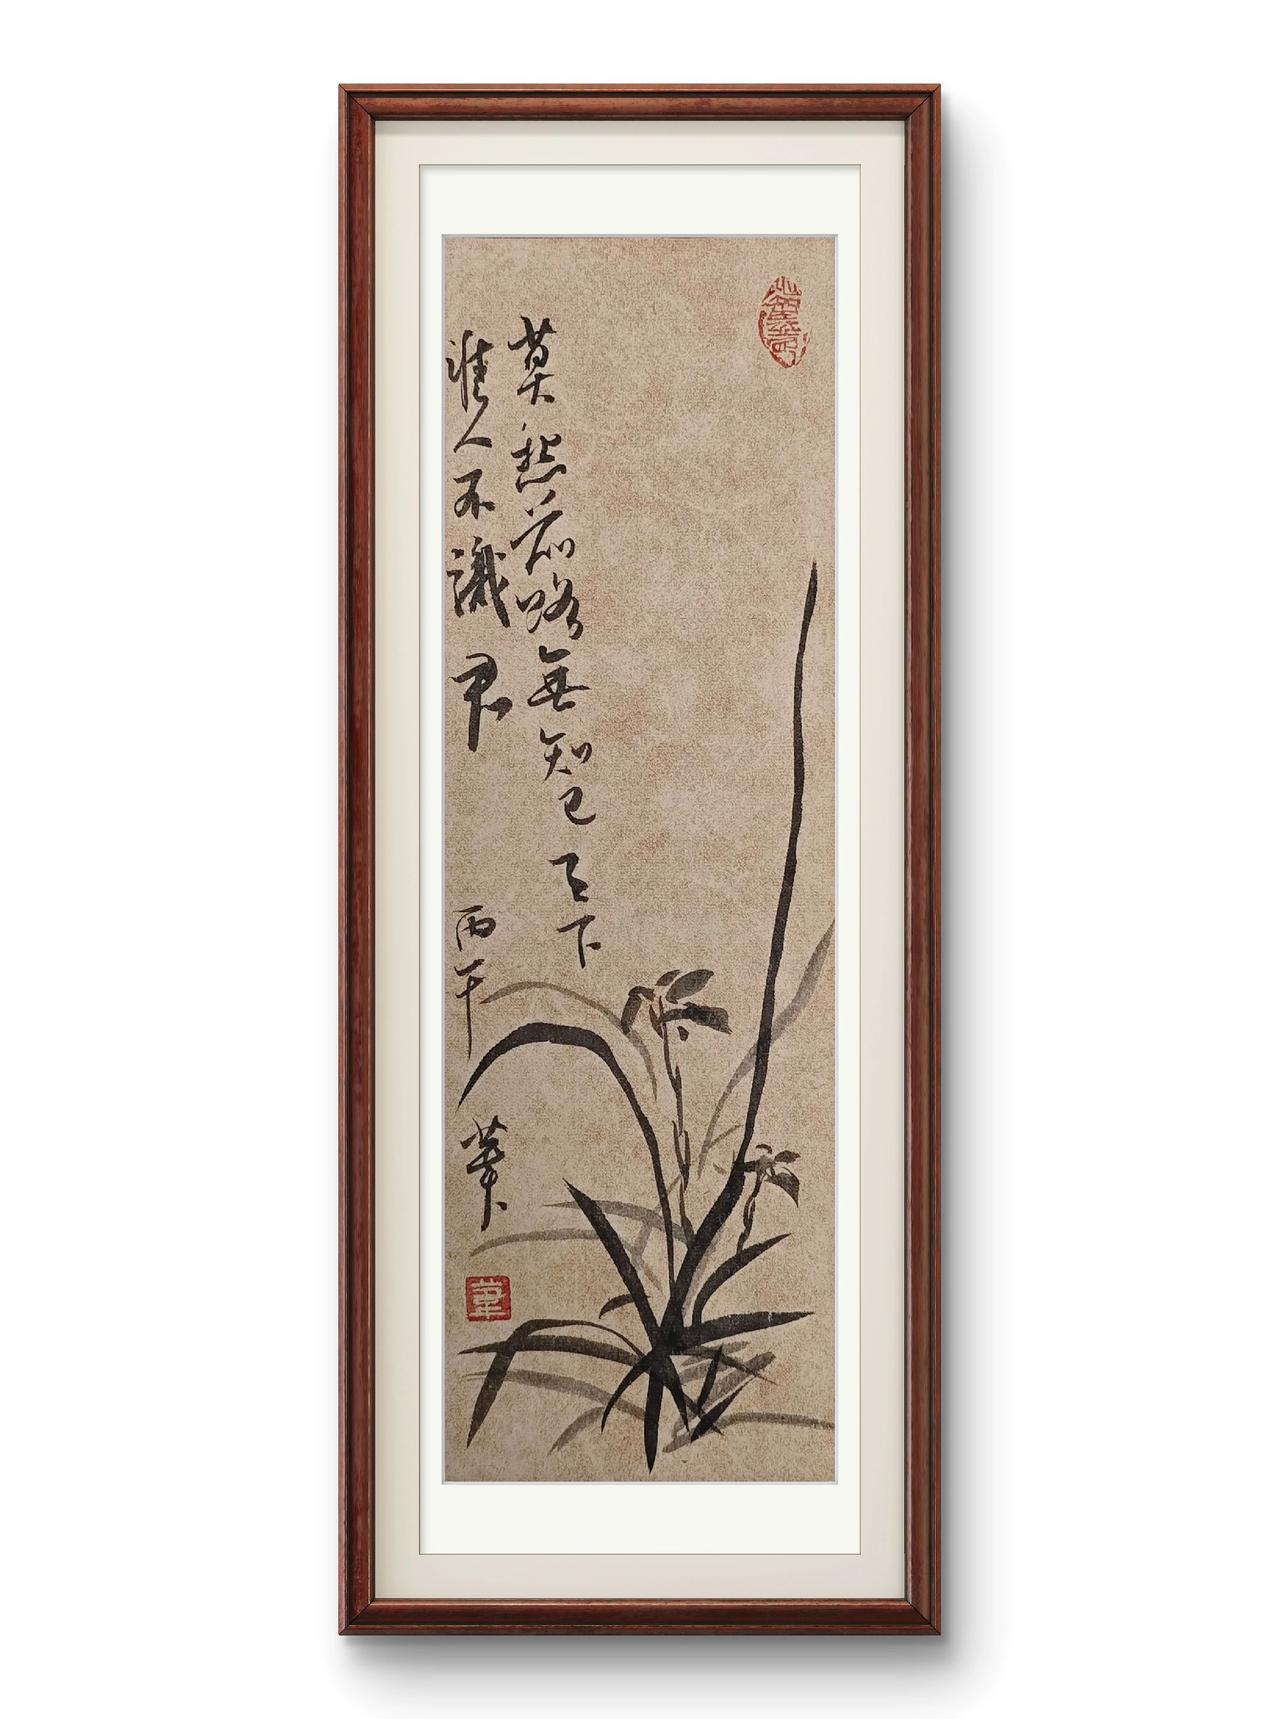 莫愁前路無知己天下
誰人不識君
丙午
葦
葦